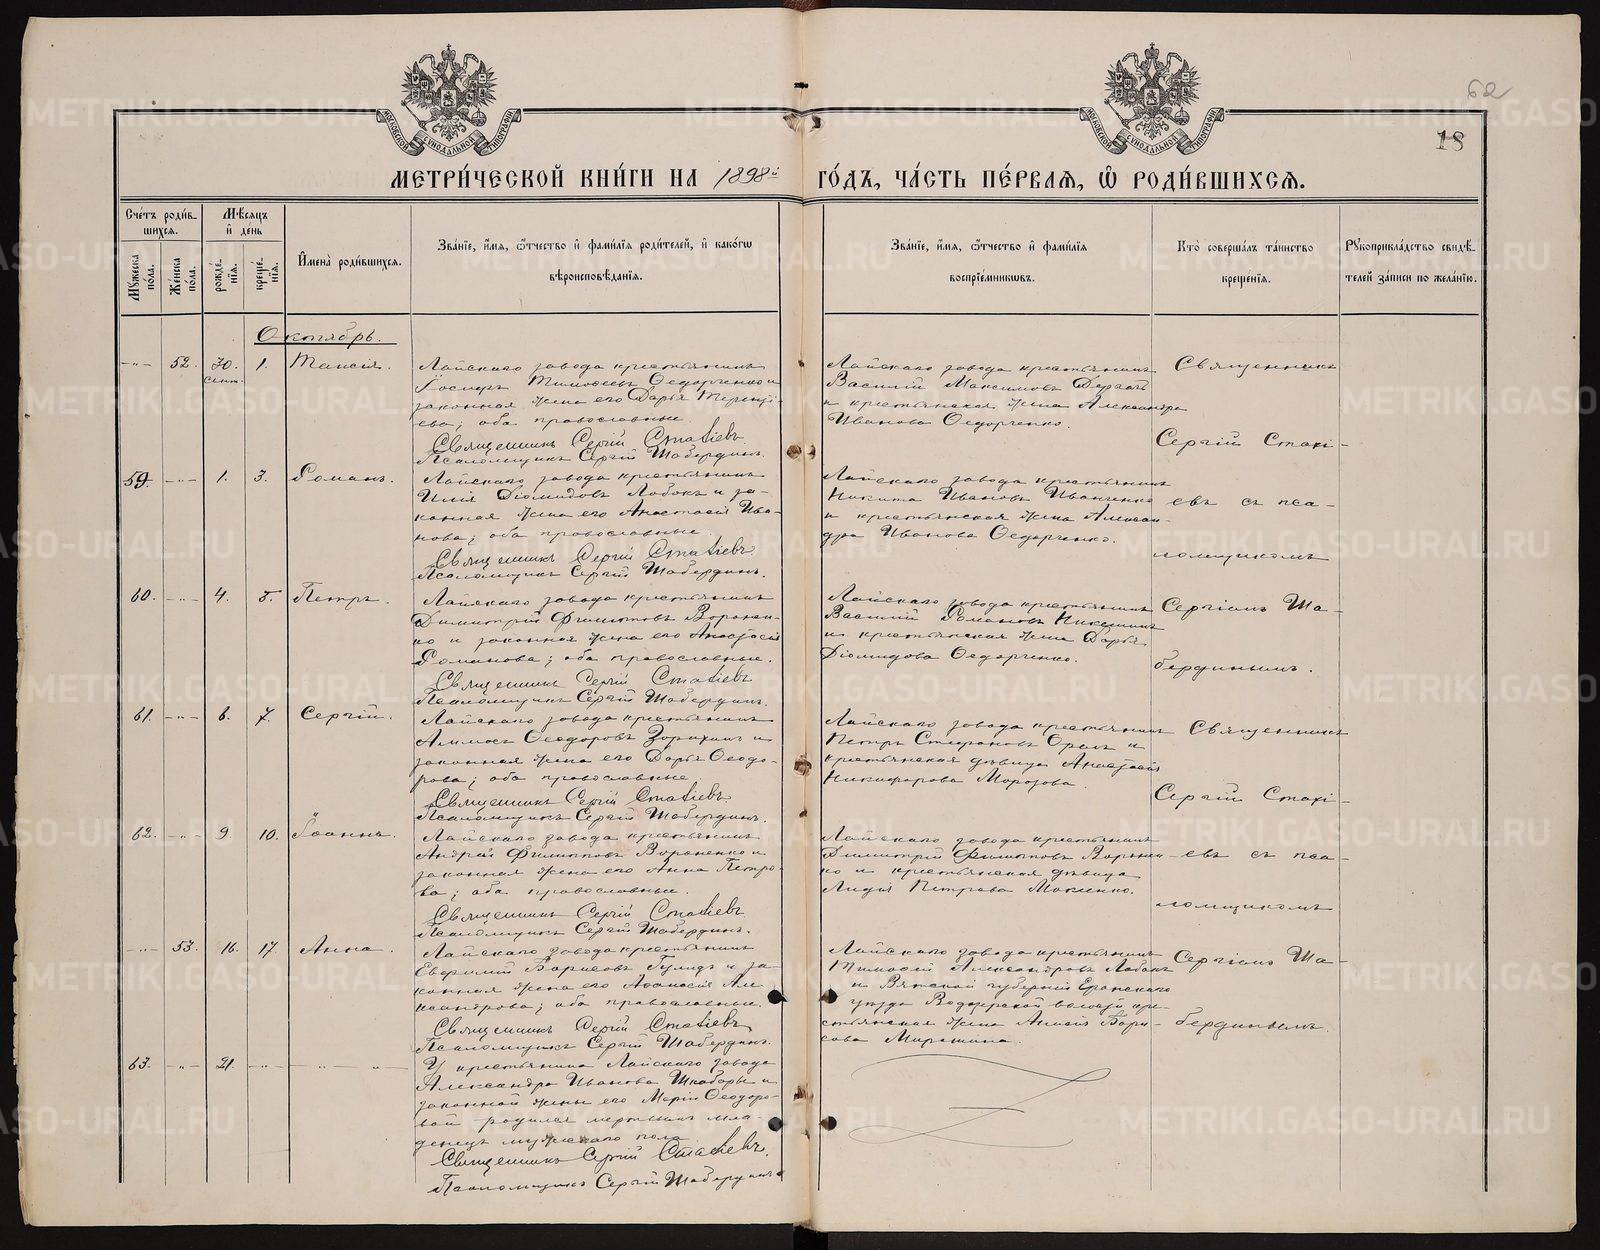 62
18
МЕТРИ́ЧЕСКОЙ КНИ́ГИ НА 1898й ГО́ДЪ, ЧА́СТЬ ПЕ́РВАЯ, Ѡ РОДИ́ВШИХСЯ.
Сче́тъ роди́в-
шихся.
Мѣ́сяцъ
и҆ де́нь
Мꙋ́жеска
по́ла.
Же́нска
по́ла.
рожде́-
нїѧ.
креще́-
нїѧ.
И҆мена̀ роди́вшихся.
Зва́нїе, и҆́мѧ, ѻ҆́тчество и҆ фами́лїѧ роди́телей, и҆ како́гѡ
вѣроисповѣ́данїѧ.
Зва́нїе, и҆́мѧ, ѻ҆́тчество и҆ фами́лїѧ
воспрїе́мникѡвъ.
Кто̀ соверша́лъ та́инство
креще́нїѧ.
Рꙋкоприкла́дство свидѣ́-
телей за́писи по жела́нїю.
Октябрь.
52. 30. сент. 1. Таисія.
Лайскаго завода крестьянинъ
Іосифъ Тимоѳеевъ Ѳедорченко и
законная жена его Дарья Теренті-
ева; оба православные.
Священникъ Сергій Стахіевъ
Псаломщикъ Сергій Шабердинъ.
Лайскаго завода крестьянинъ
Василій Максимовъ Дергачъ
и крестьянская жена Александра
Иванова Ѳедорченко.
Священникъ
Сергій Стахі-
59. 1. 3. Романъ.
Лайскаго завода крестьянинъ
Илія Діомидовъ Лобокъ и за-
конная жена его Анастасія Ива-
нова; оба православные.
Священникъ Сергій Стахіевъ
Псаломщикъ Сергій Шабердинъ.
Лайскаго завода крестьянинъ
Никита Ивановъ Иванченко
и крестьянская жена Алексан-
дра Иванова Ѳедорченко.
евъ съ пса-
ломщикомъ
60. 4. 5. Петръ.
Лайскаго завода крестьянинъ
Димитрій Филиповъ Воронен-
ко и законная жена его Анастасія
Романова; оба православные.
Священникъ Сергій Стахіевъ
Псаломщикъ Сергій Шабердинъ.
Лайскаго завода крестьянинъ
Василій Романовъ Никишинъ
и крестьянская жена Дарья
Діомидова Ѳедорченко.
Сергіемъ Ша-
бердинымъ.
61. 6. 7. Сергій.
Лайскаго завода крестьянинъ
Ѳеодоровъ и
законная жена его Дарья Ѳеодо-
рова; оба православные.
Священникъ Сергій Стахіевъ
Псаломщикъ Сергій Шабердинъ.
Лайскаго завода крестьянинъ
Петръ Стефановъ Орелъ и
крестьянская дѣвица Анастасія
Никифорова Морозова.
Священникъ
Сергій Стахі-
62. 9. 10. Іоаннъ.
Лайскаго завода крестьянинъ
Андрей Филиповъ Вороненко и
законная жена его Анна Петро-
ва; оба православные.
Священникъ Сергій Стахіевъ
Псаломщикъ Сергій Шабердинъ.
Лайскаго завода крестьянинъ
Димитрій Филиповъ Воронен-
ко и крестьянская дѣвица
Лидія Петрова Мокіенко.
евъ съ пса-
ломщикомъ
53. 16. 17. Анна.
Лайскаго завода крестьянинъ
Евфимій Борисовъ и за-
конная жена его Аѳанасія Але-
ксандрова; оба православные.
Священникъ Сергій Стахіевъ
Псаломщикъ Сергій Шабердинъ.
Лайскаго завода крестьянинъ
Тимоѳей Александровъ Лобокъ
и Вятской губерніи Яранскаго
уѣзда волости кре-
стьянская жена Бори-
сова Миронина.
Сергіемъ Ша-
бердинымъ.
63. 21.
У крестьянина Лайскаго завода
Александра Иванова Шкабары и
законной жены его Маріи Ѳеодоро-
вой родился мертвымъ мла-
денецъ мужескаго пола.
Священникъ Сергій Стахіевъ.
Псаломщикъ Сергій Шабердинъ